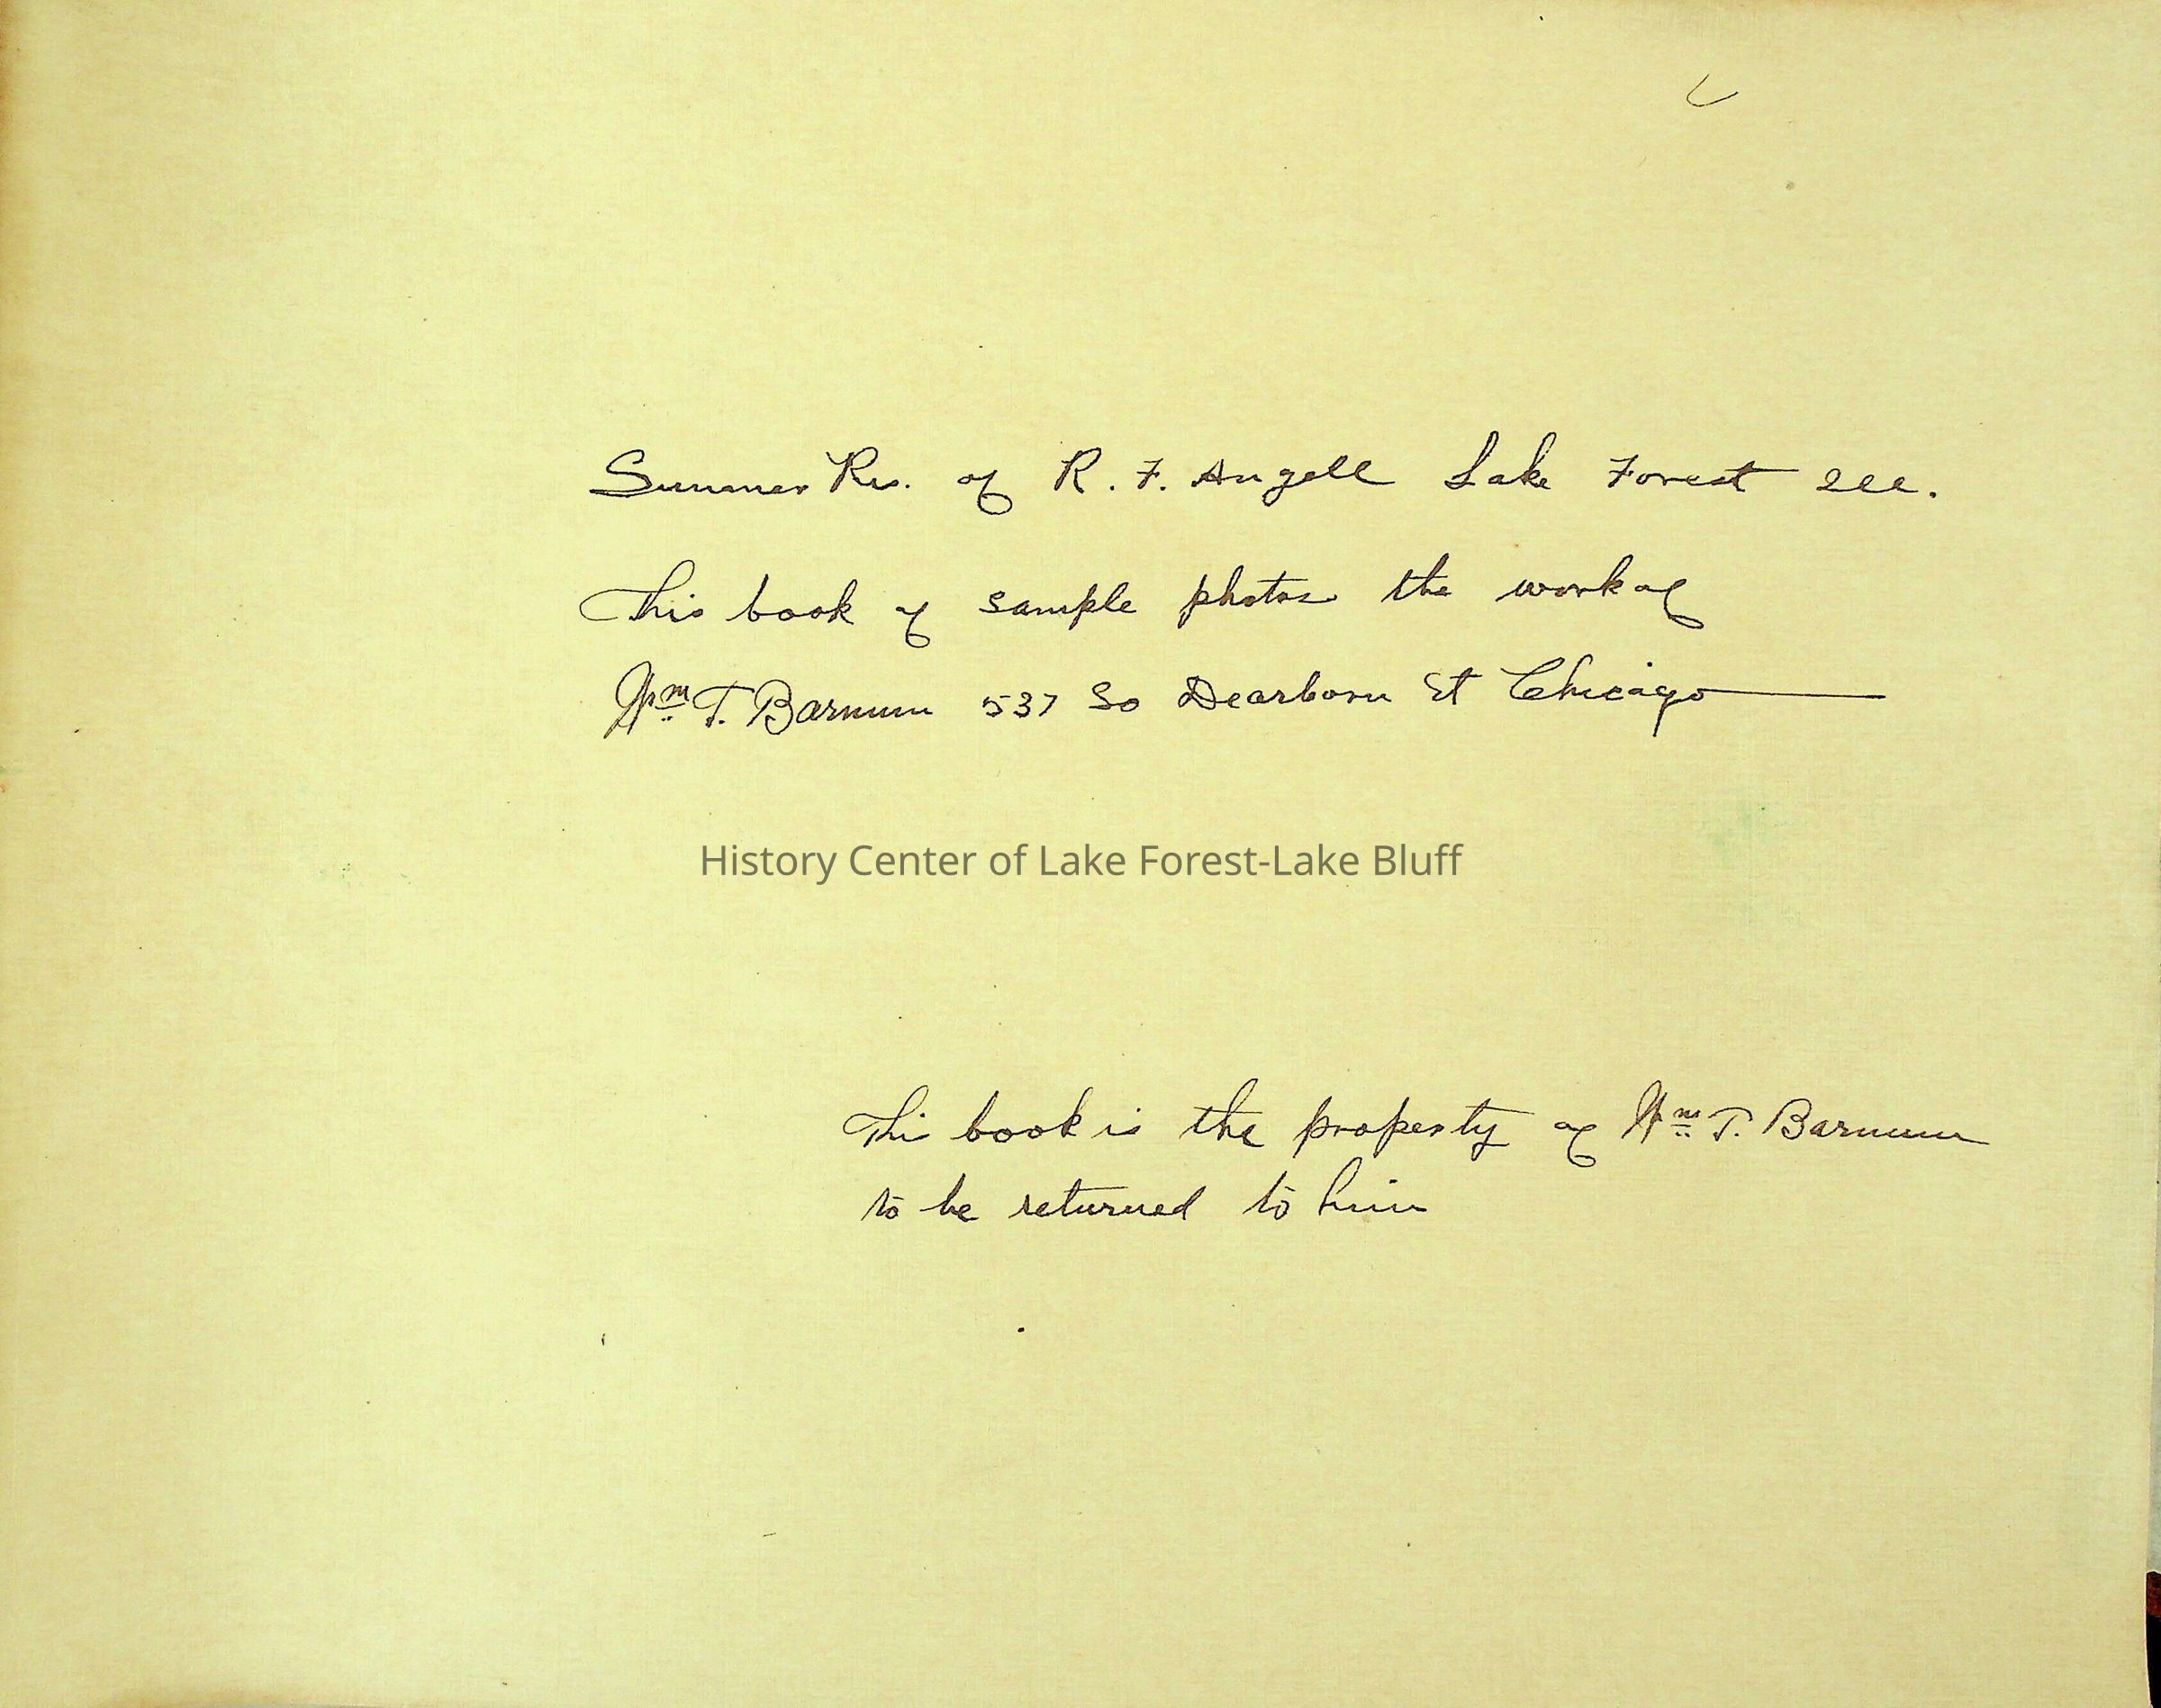 Summer Res. of R. F. Angell Lake Forest Ill.
This book of sample photos the work of
Wm T. Barnum 537 So Dearborn St Chicago
History Center of Lake Forest-Lake Bluff
This book is the property of Wm T. Barnum
to be returned to him